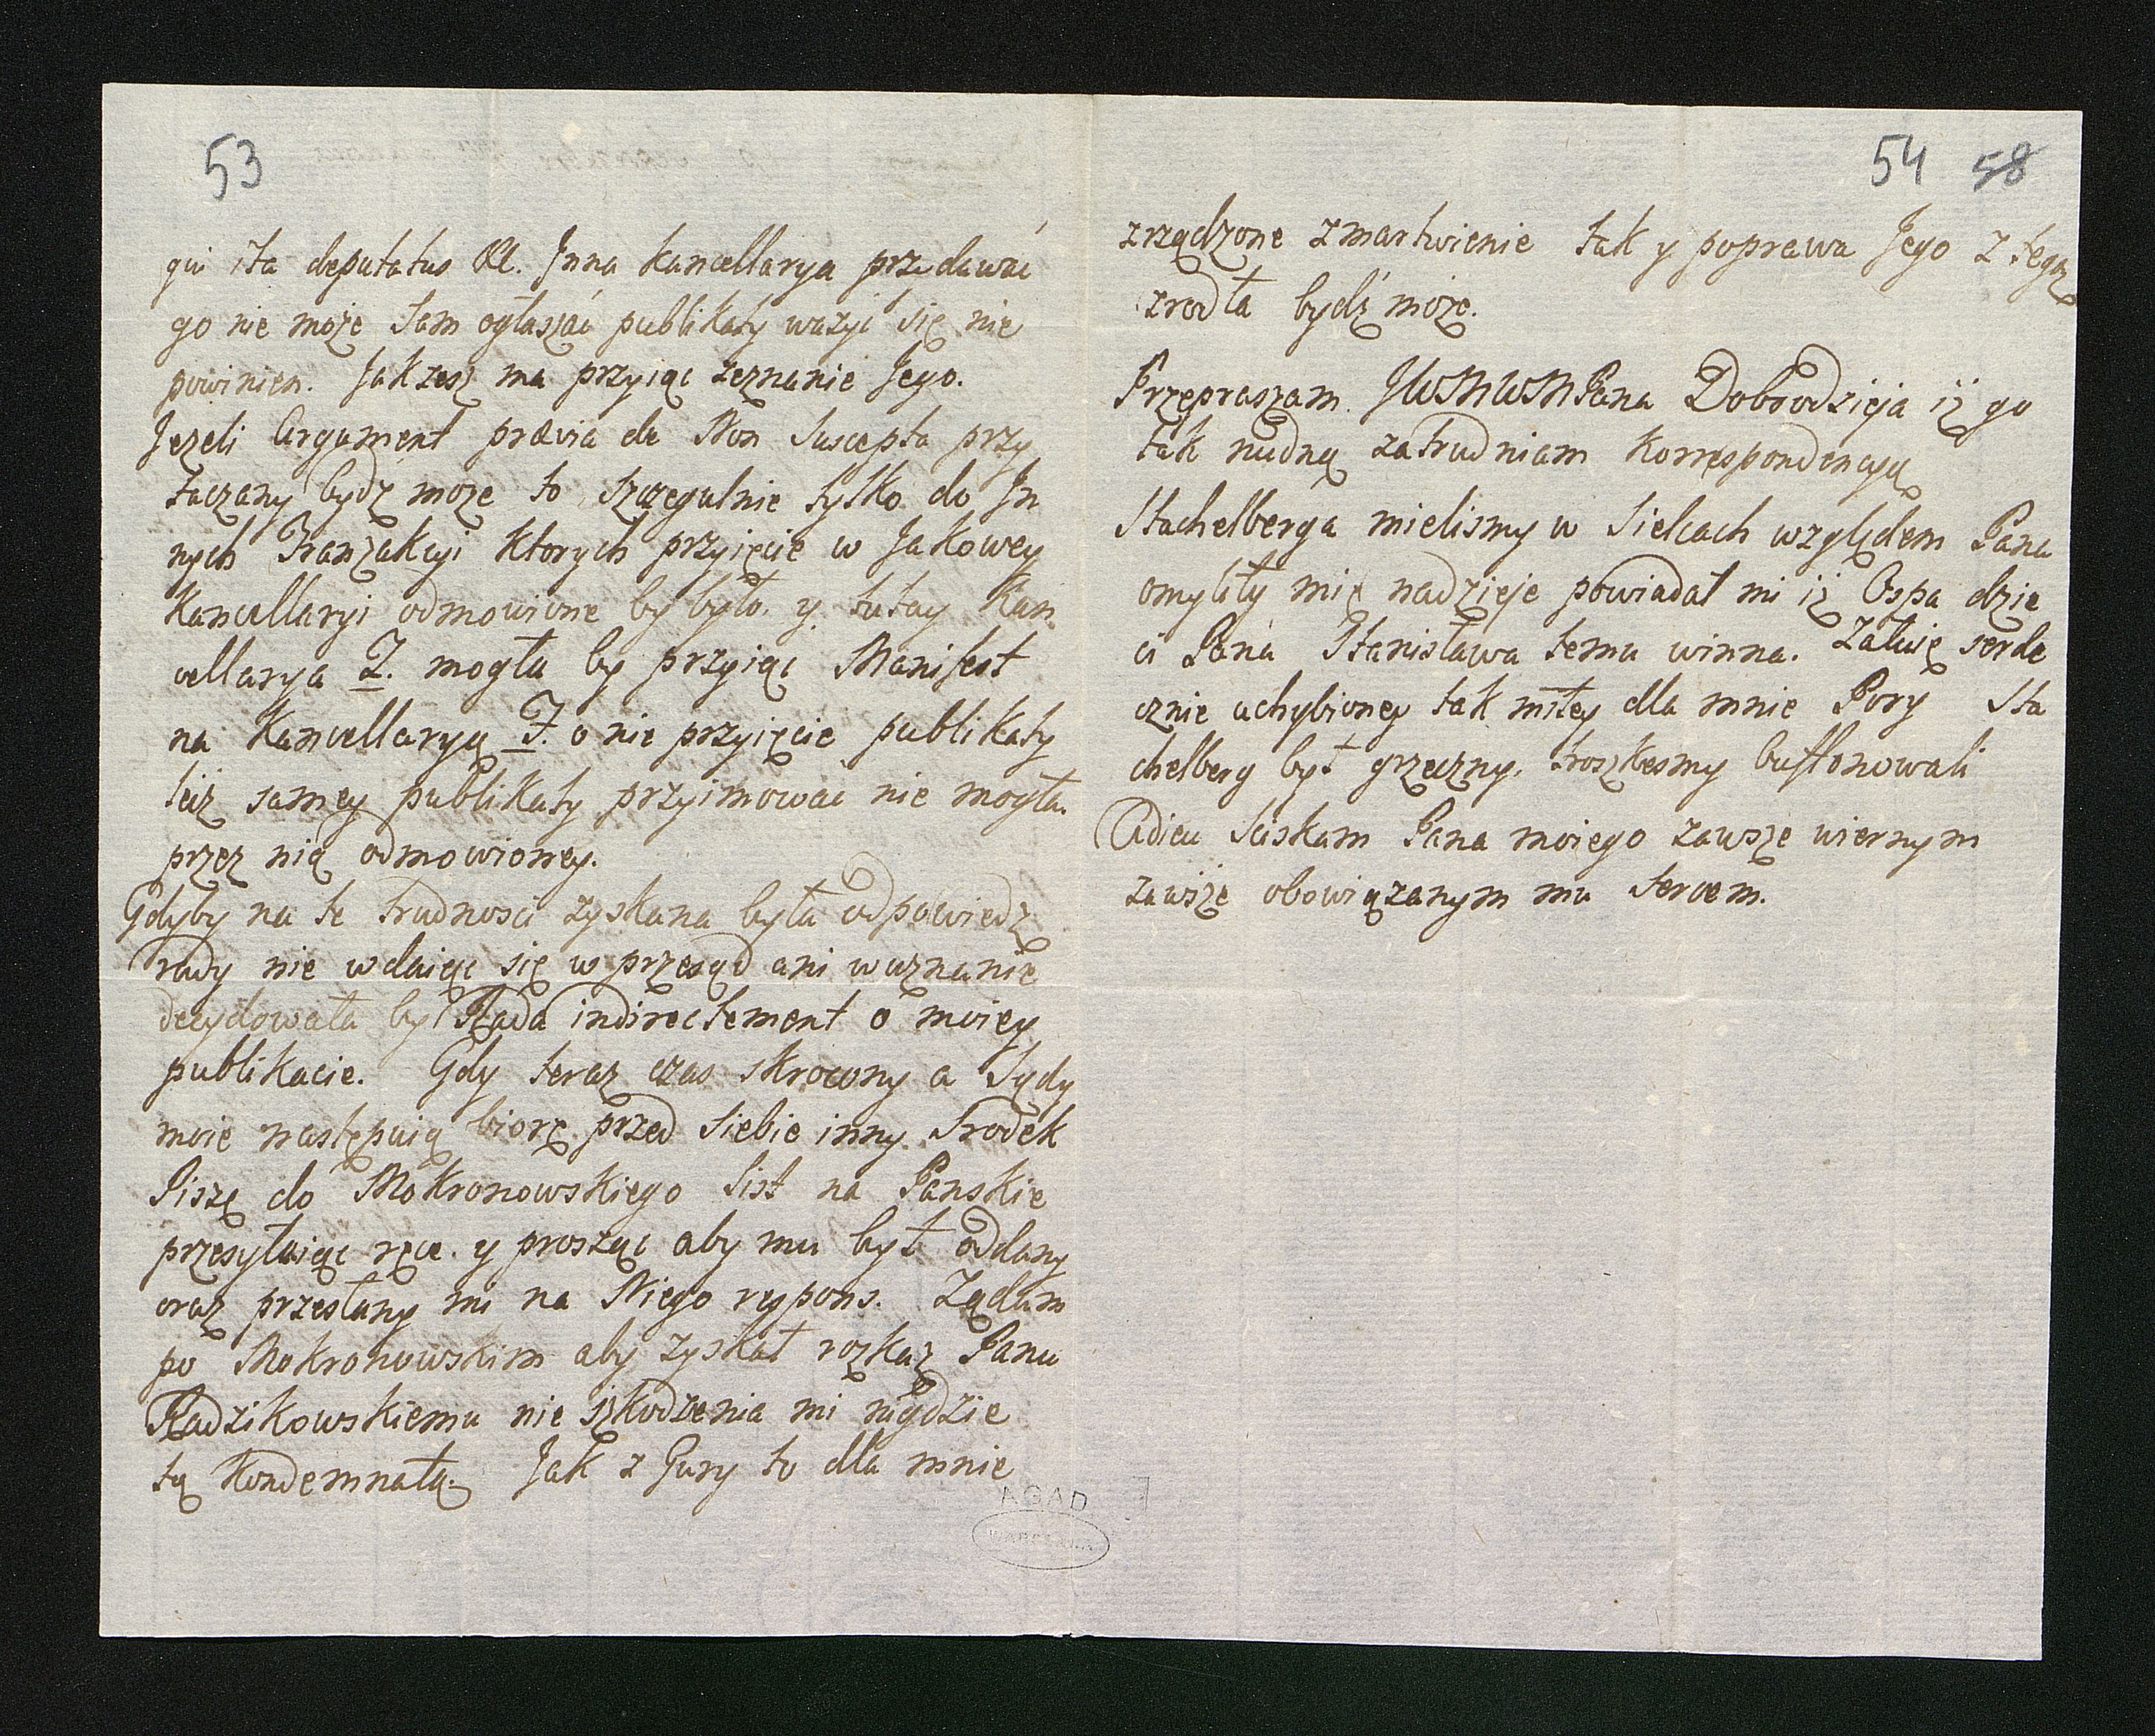 53
qui ita deputatus &c. Jnna kancellarya przydawać
go nie może sam ogłaszać publikaty ważyć się nie
powinien. Jakzesz ma przyiąć zeznanie Jego.
Jezeli Argument prævia de Non Suscepta przy
taczany bydź może to szczegulnie tylko do Jn
nych Tranzakcyi ktorych przyięcie w Jakowey
Kancellaryi odmowione by było. y tutay Kan
cellarya Z. mogła by przyiąć Manifest
na Kancellaryą F. o nie przyięcie publikaty
teiz samey publikaty przyimować nie mogła.
przez nią odmowioney.
Gdyby na te trudnosci zyskana była odpowiedz
rady nie wdaiąc się w przesąd ani w uznanie
decydowała by Rada indirectement o moiey
publikacie. Gdy teraz czas skrocony a Sądy
moie następuią biorę przed siebie inny Srodek
Piszę do Mokronowskiego list na Panskie
przesyłaiąc ręce. y prosząc aby mu był oddany
oraz przesłany mi na Niego respons. Ządam
po Mokronowskim aby zyskał rozkaz Panu
Radzikowskiemu nie szkodzenia mi nigdzie
tą Kondemnatą. Jak z Gury to dla mnie
AGAD
WARSZAWA
54 58
zrządzone zmartwienie tak y poprawa Jego z tegoż
zrodła bydź może.
Przepraszam JWWMWMPana Dobrodzieja iż go
tak nudną zatrudniam Korrespondencyą
Stachelberga mielismy w Sielcach względem Pana
omyliły mię nadzieje powiadał mi iż Ospa dzie
ci Pana Stanisława temu winna. Załuię serde
cznie uchybioney tak miłey dla mnie Pory Sta
chelberg był grzeczny, troszkesmy buffonowali
Adieu Sciskam Pana moiego zawsze wiernym
zawsze obowiązanym mu sercem.